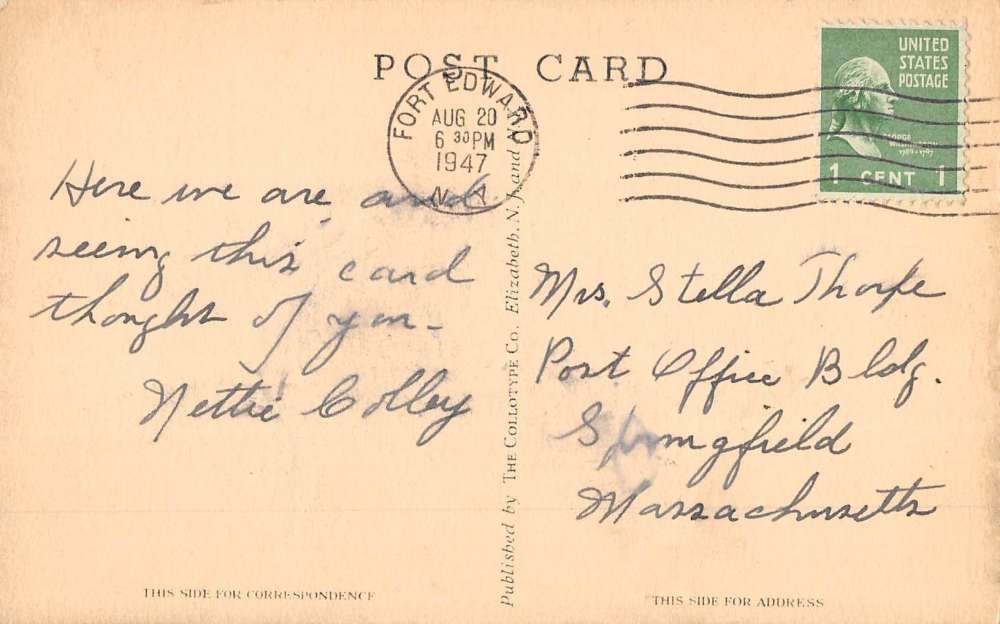 POST CARD
FORT EDWARD
AUG 20
6 30 PM
1947
N.Y.
UNITED
STATES
POSTAGE
GEORGE
WASHINGTON
1789-1797
1 CENT 1
Here we are and
seeing this card
thought of you-
Nettie Colley
Published by THE COLLOTYPE CO. Elizabeth, N.J. and N.
Mrs. Stella Thorpe
Post Office Bldg.
Springfield
Massachusetts
THIS SIDE FOR CORRESPONDENCE
THIS SIDE FOR ADDRESS